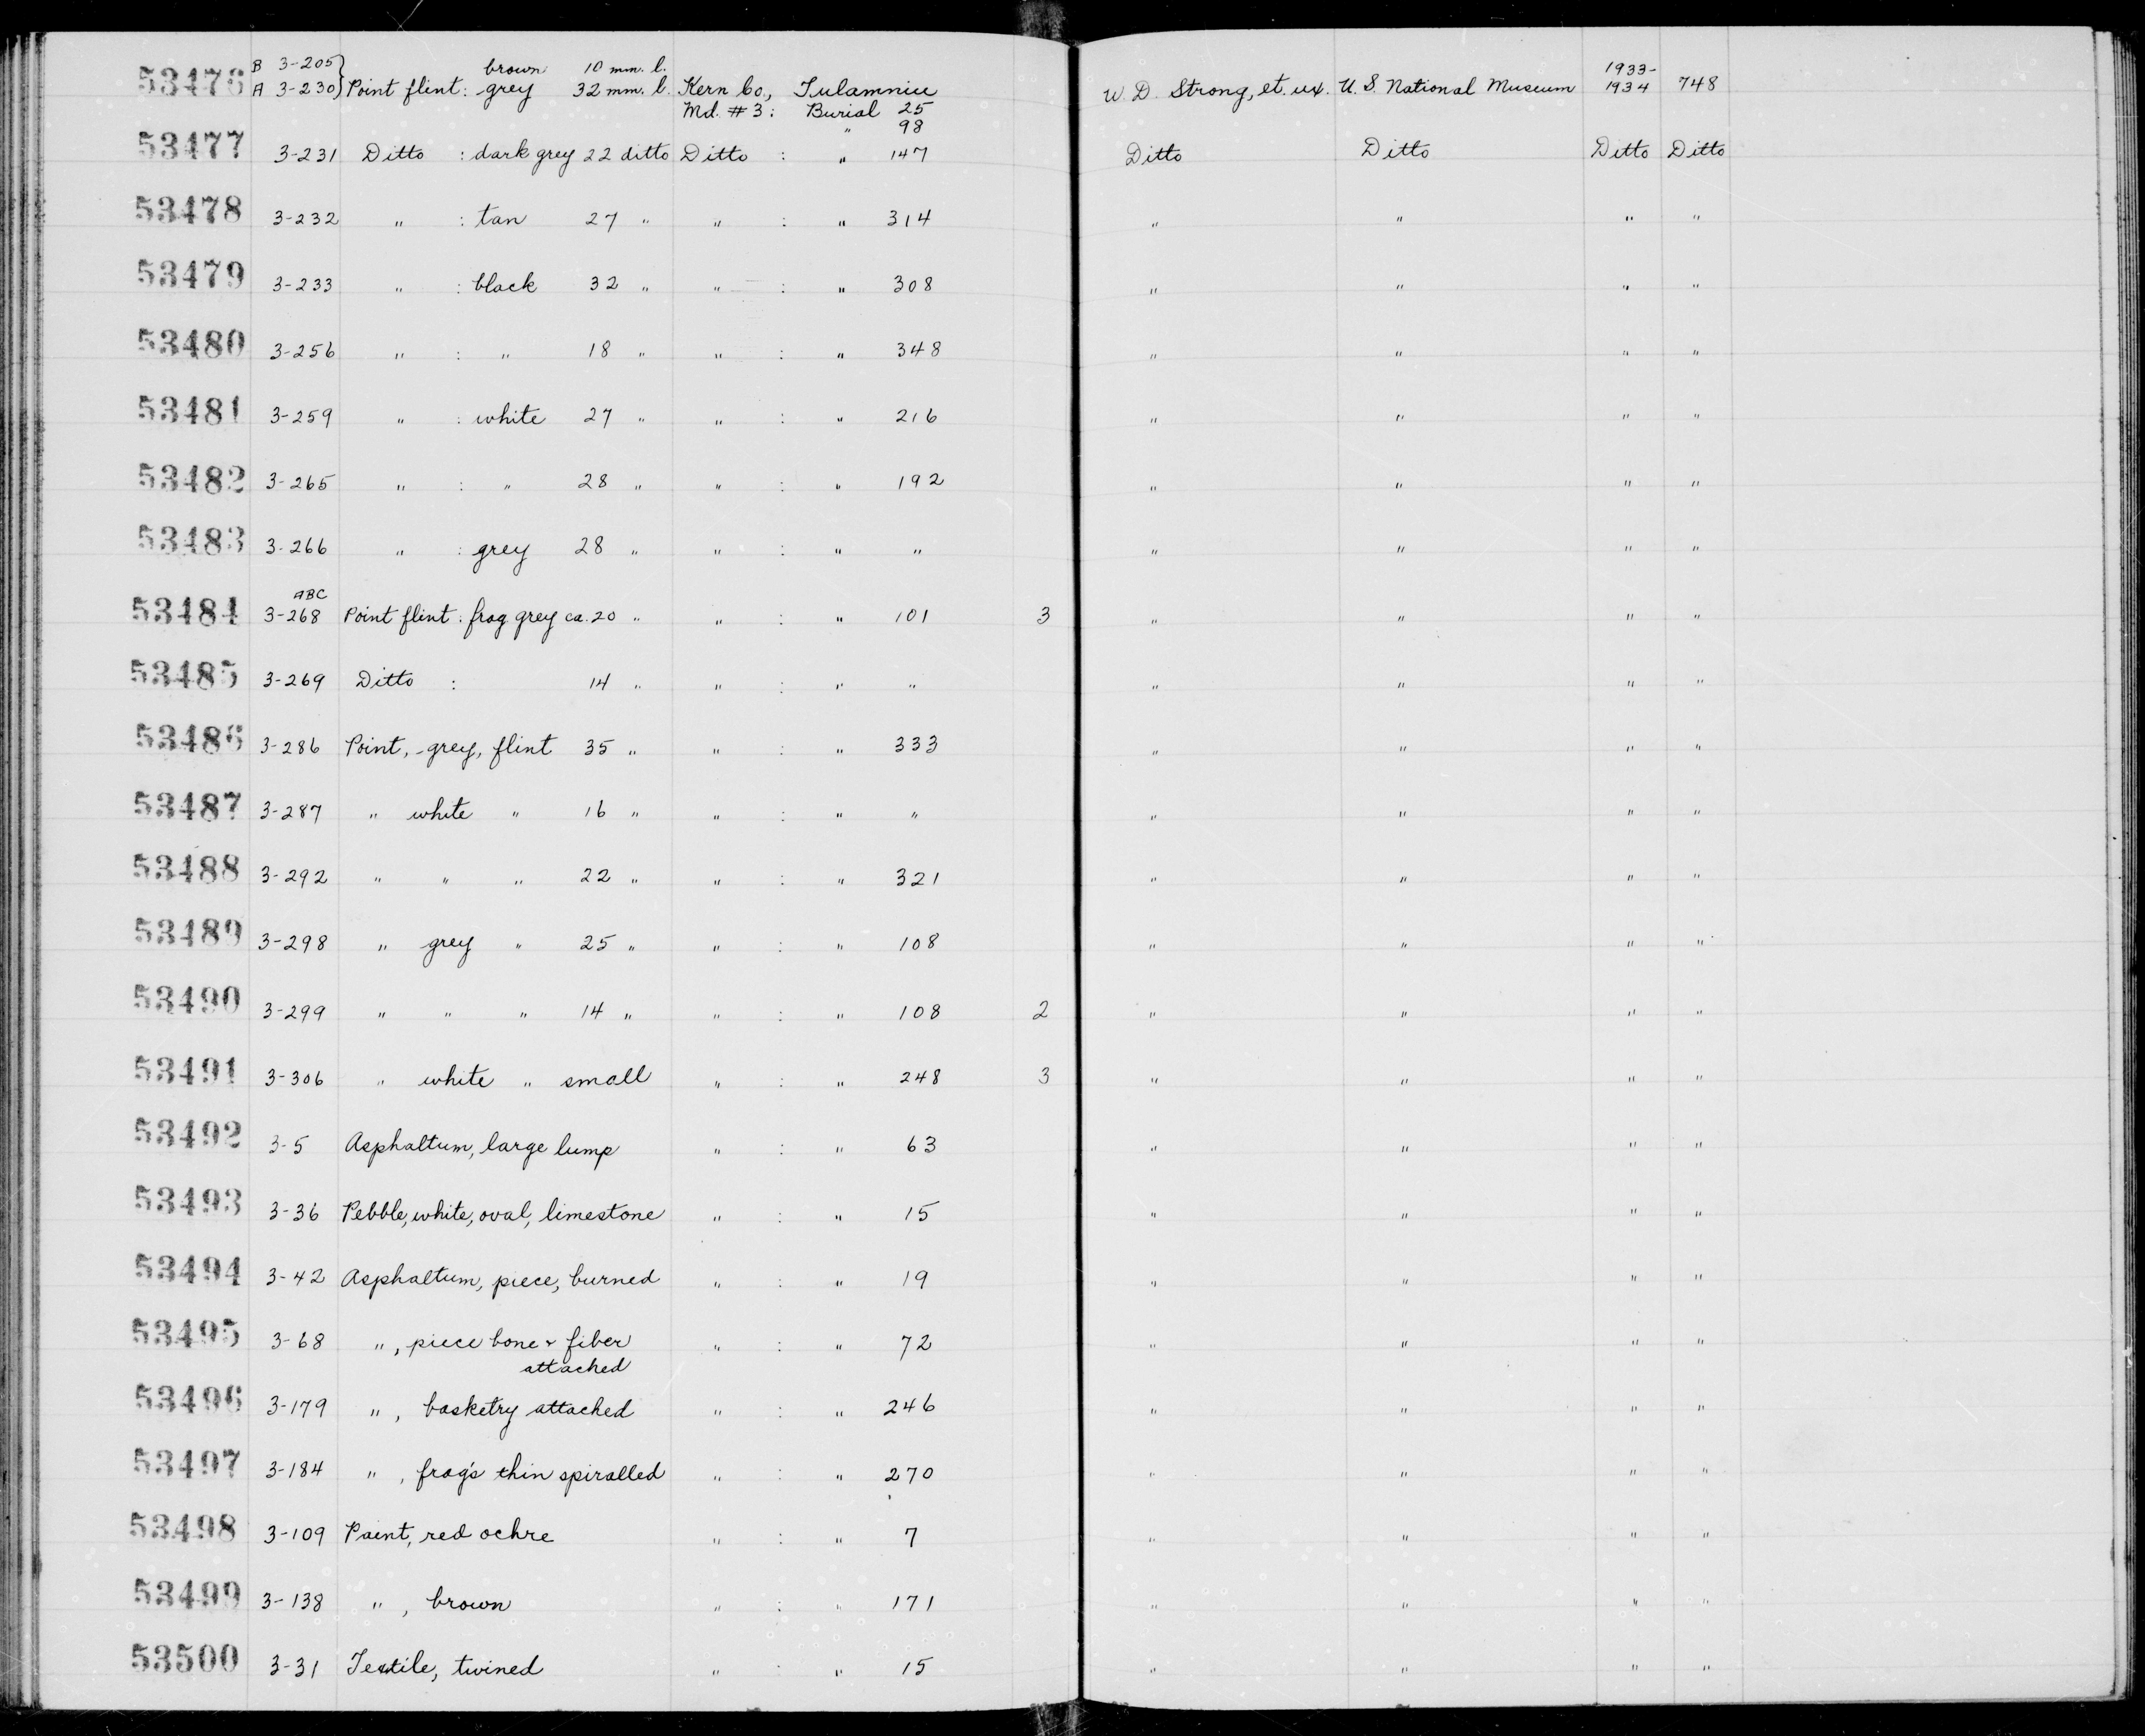 B 3-205 brown 10 mm. l. 1933-
53476 A 3-230 } Point flint: grey 32 mm. l. Kern Co., Tulamniu W. D. Strong, et. ux. U. S. National Museum 1934 748
Md. # 3: Burial 25
" 98
53477 3-231 Ditto : dark grey 22 ditto Ditto : " 147 Ditto Ditto Ditto Ditto
53478 3-232 " : tan 27 " " : " 314 " " " "
53479 3-233 " : black 32 " " : " 308 " " " "
53480 3-256 " : " 18 " " : " 348 " " " "
53481 3-259 " : white 27 " " : " 216 " " " "
53482 3-265 " : " 28 " " : " 192 " " " "
53483 3-266 " : grey 28 " " : " " " " " "
ABC
53484 3-268 Point flint : frag grey ca. 20 " " : " 101 3 " " " "
53485 3-269 Ditto : 14 " " : " " " " " "
53486 3-286 Point, grey, flint 35 " " : " 333 " " " "
53487 3-287 " white " 16 " " : " " " " " "
53488 3-292 " " " 22 " " : " 321 " " " "
53489 3-298 " grey " 25 " " : " 108 " " " "
53490 3-299 " " " 14 " " : " 108 2 " " " "
53491 3-306 " white " small " : " 248 3 " " " "
53492 3-5 Asphaltum, large lump " : " 63 " " " "
53493 3-36 Pebble, white, oval, limestone " : " 15 " " " "
53494 3-42 Asphaltum, piece, burned " : " 19 " " " "
53495 3-68 " , piece bone + fiber " : " 72 " " " "
attached
53496 3-179 " , basketry attached " : " 246 " " " "
53497 3-184 " , frag's thin spiralled " : " 270 " " " "
53498 3-109 Paint, red ochre " : " 7 " " " "
53499 3-138 " , brown " : " 171 " " " "
53500 3-31 Textile, twined " : " 15 " " " "